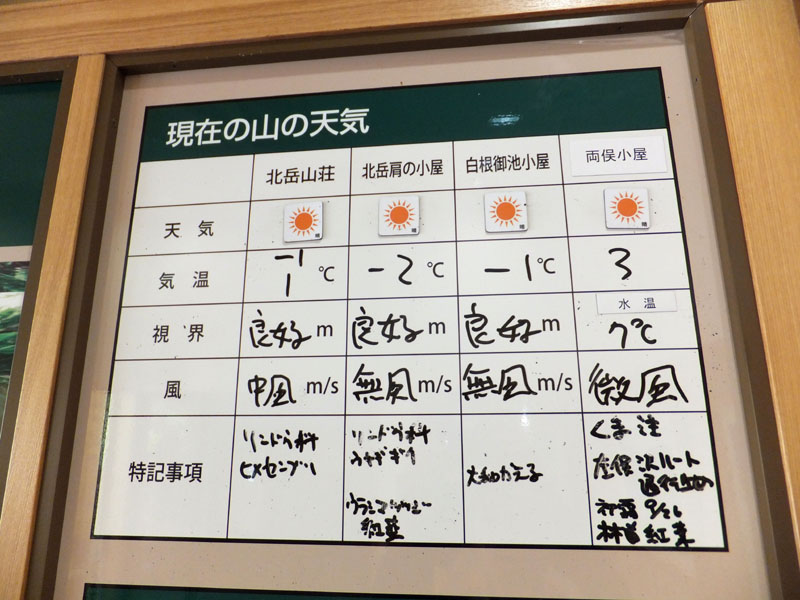 現在の山の天気
北岳山荘 北岳肩の小屋 白根御池小屋 両俣小屋
天気 晴 晴 晴 晴
気温 -1 1 ℃ -2 ℃ -1 ℃ 3
水温
視界 良好 m 良好 m 良好 m 7℃
風 中風 m/s 無風 m/s 無風 m/s 微風
特記事項
リンドウ科
ヒメセンブリ
リンドウ科
紅葉
くま注
左俣 ルート
9/26
紅葉